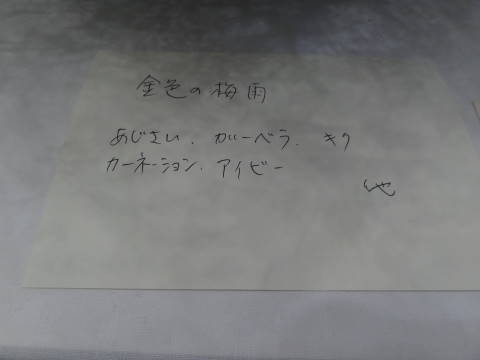 金色の梅雨
あじさい、ガーベラ、キク
カーネーション、アイビー
他